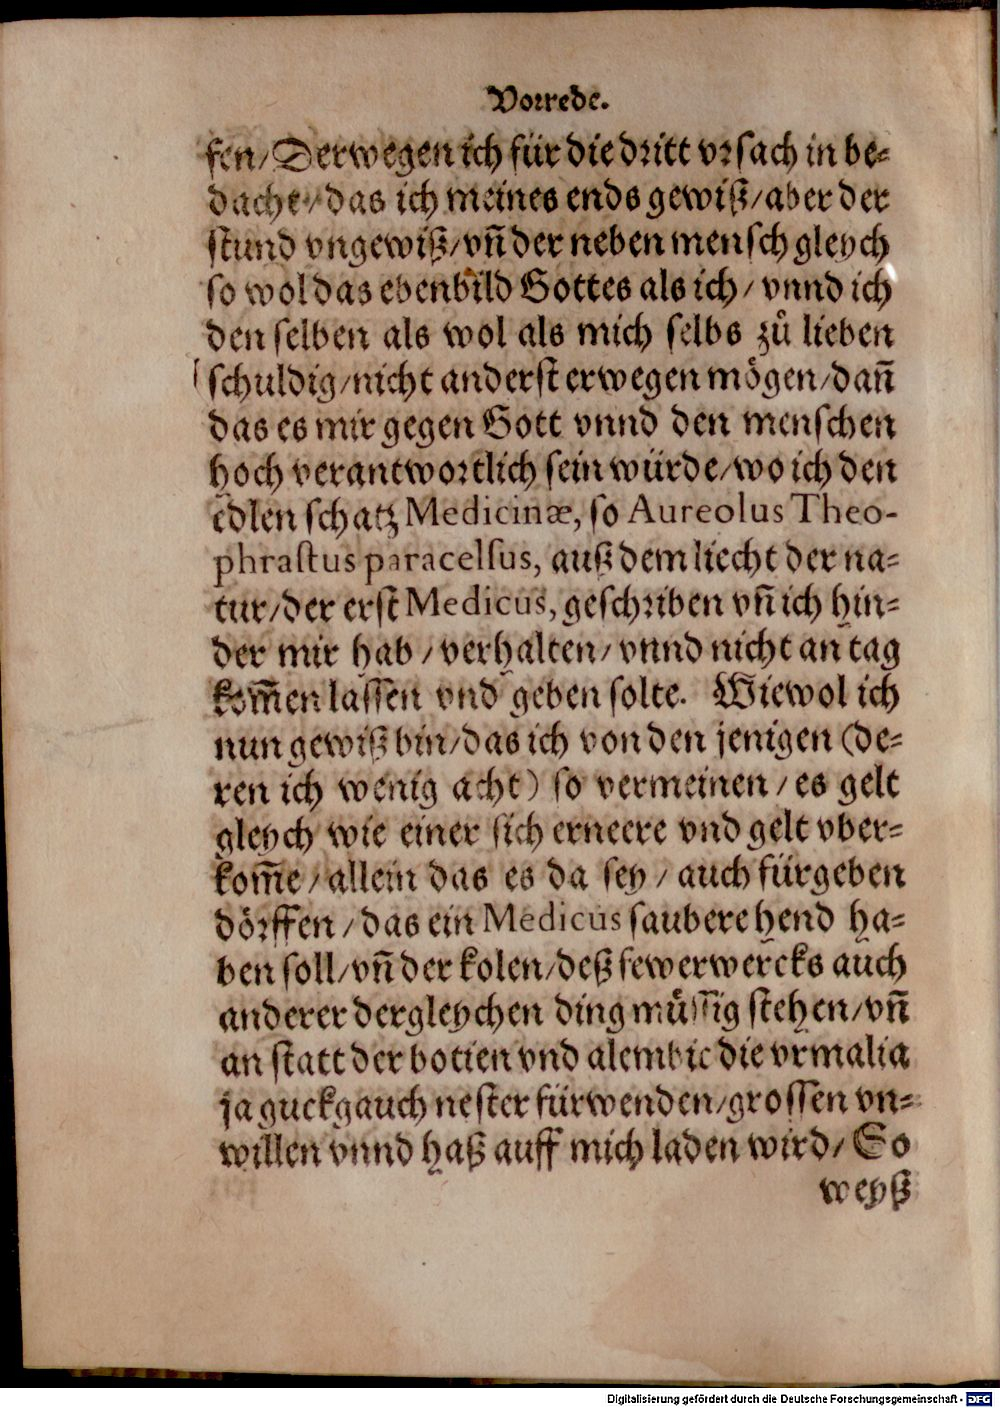 Vorrede.
fen/ Derwegen ich für die dritt vrsach in be-
dacht/ das ich meines ends gewiß/ aber der
stund vngewiß/ vñ der neben mensch gleych
so wol das ebenbild Gottes als ich/ vnnd ich
den selben als wol als mich selbs zů lieben
schuldig/ nicht anderst erwegen mögen/ dañ
das es mir gegen Gott vnnd den menschen
hoch verantwortlich sein würde/ wo ich den
edlen schatz Medicinæ, so Aureolus Theo-
phrastus paracelsus, auß dem liecht der na-
tur/ der erst Medicus, geschriben vñ ich hin-
der mir hab/ verhalten/ vnnd nicht an tag
kom̃en lassen vnd geben solte. Wiewol ich
nun gewiß bin/ das ich von den jenigen (de-
ren ich wenig acht) so vermeinen/ es gelt
gleych wie einer sich erneere vnd gelt vber-
kom̃e/ allein das es da sey/ auch fürgeben
dörffen/ das ein Medicus saubere hend ha-
ben soll/ vñ der kolen/ deß fewerwercks auch
anderer dergleychen ding müssig stehen/ vñ
an statt der botien vnd alembic die vrmalia
ja guckgauch nester fürwenden/ grossen vn-
willen vnnd haß auff mich laden wird/ So
weyß
Digitalisierung gefördert durch die Deutsche Forschungsgemeinschaft - DFG